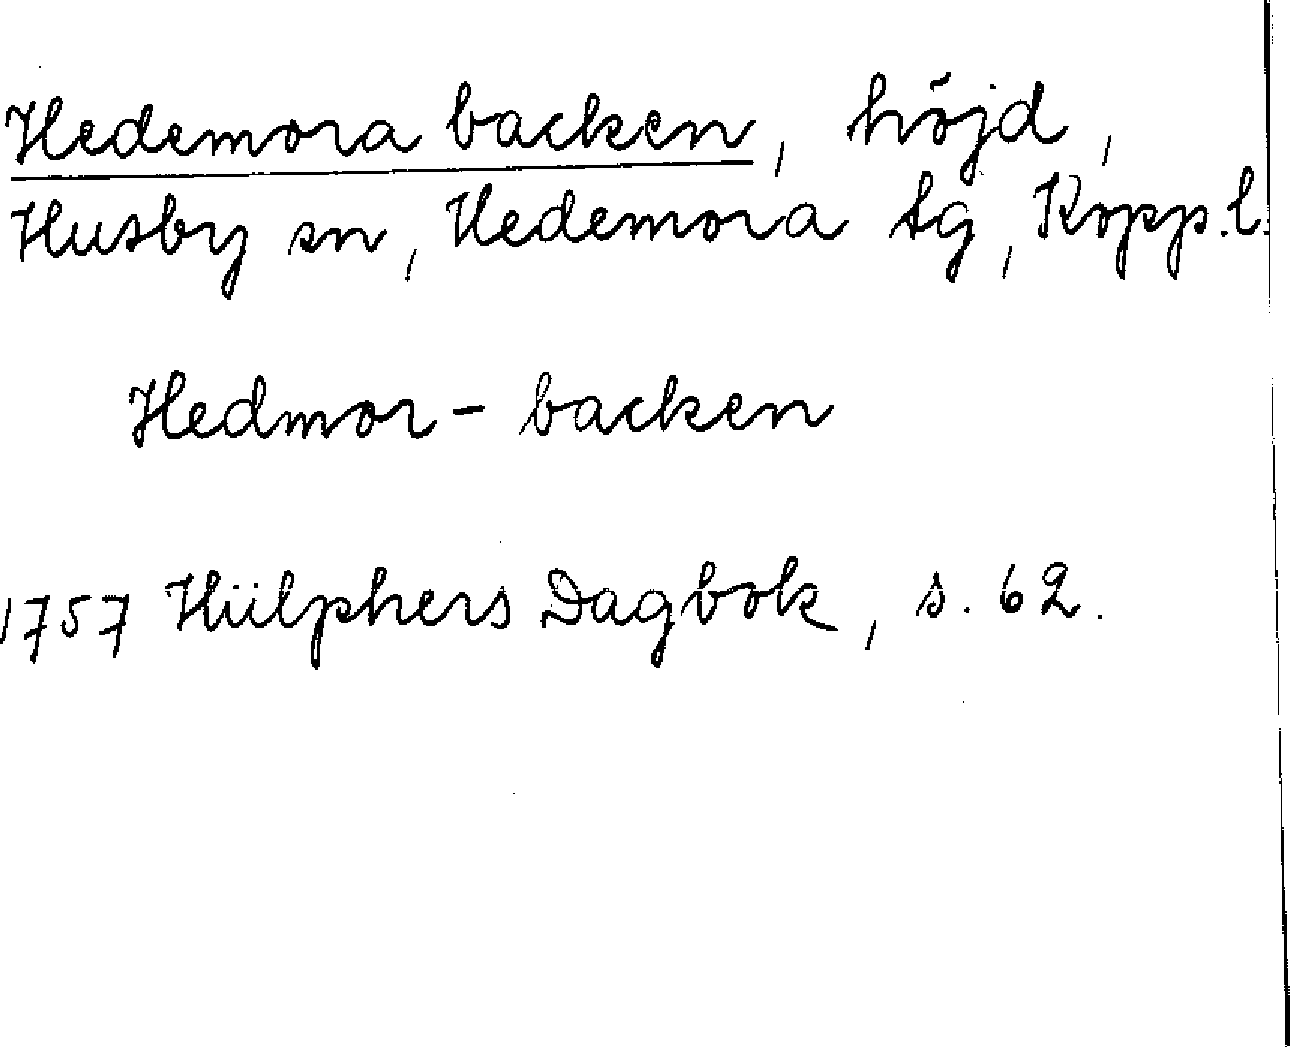 Hedemora backen, höjd,
Husby sn, Hedemora tg, Kopp.l.
Hedmor-backen
1757 Hülphers Dagbok, s. 62.